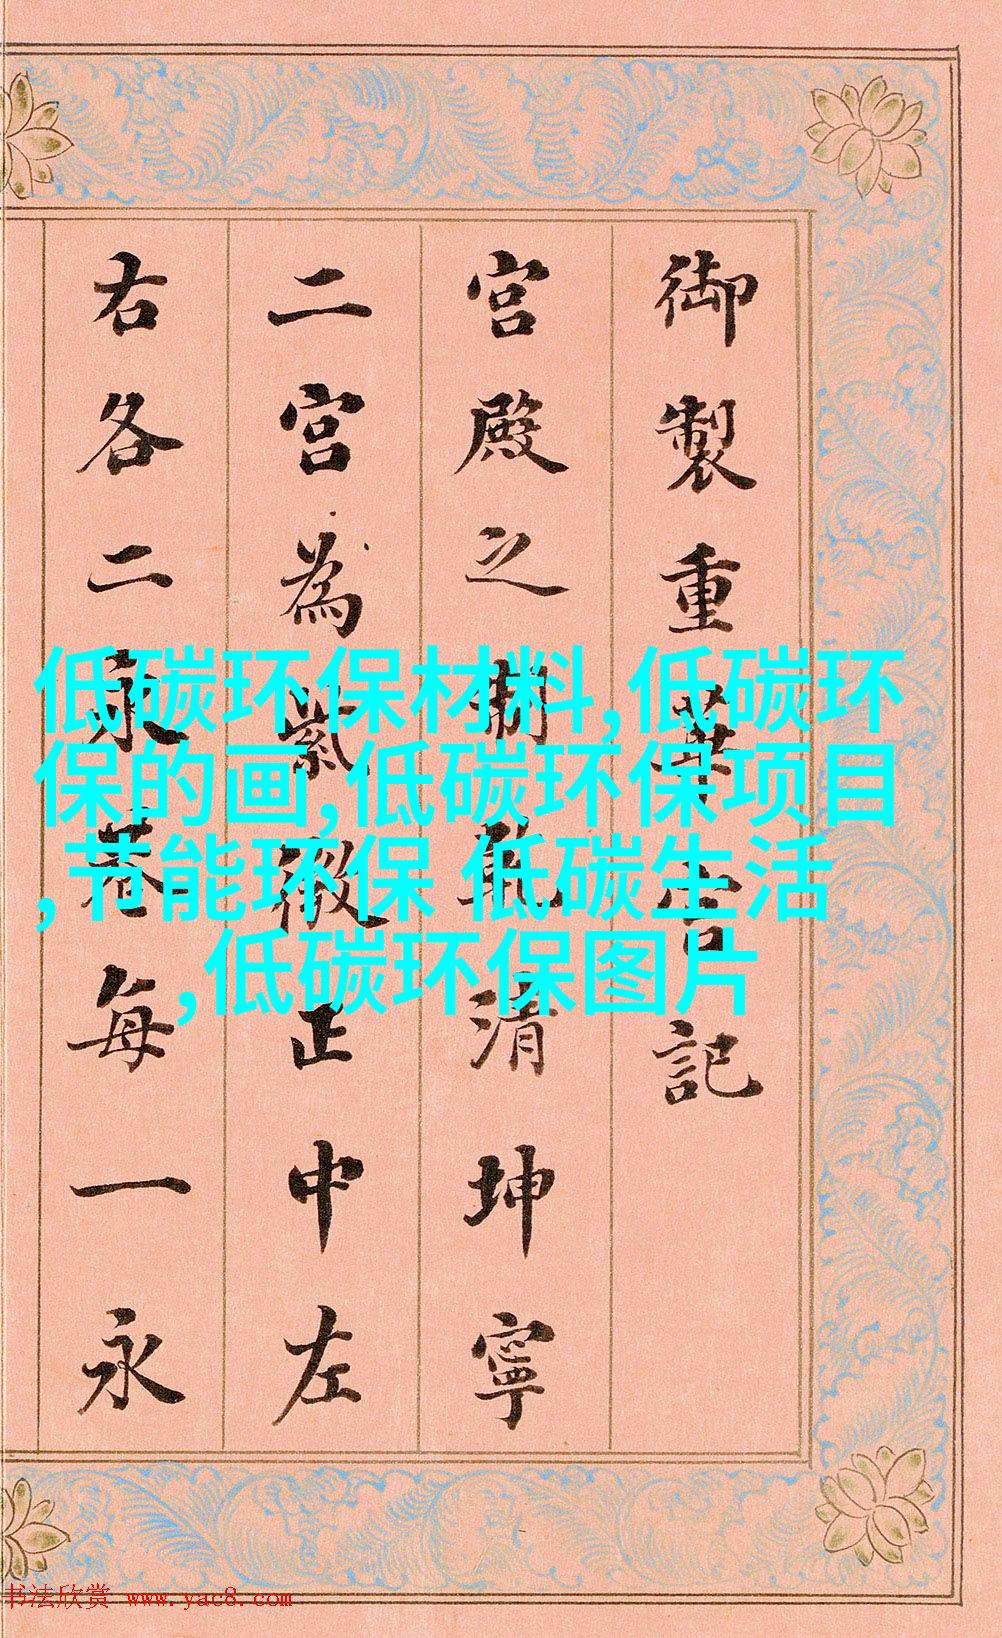 御製重華宮記
宮殿之制乾清坤寧
二宮為紫微正中左
右各二永巷每一永
低碳环保材料,低碳环
保的画,低碳环保项目
,节能环保 低碳生活
,低碳环保图片
书法欣赏 www.yac8.com